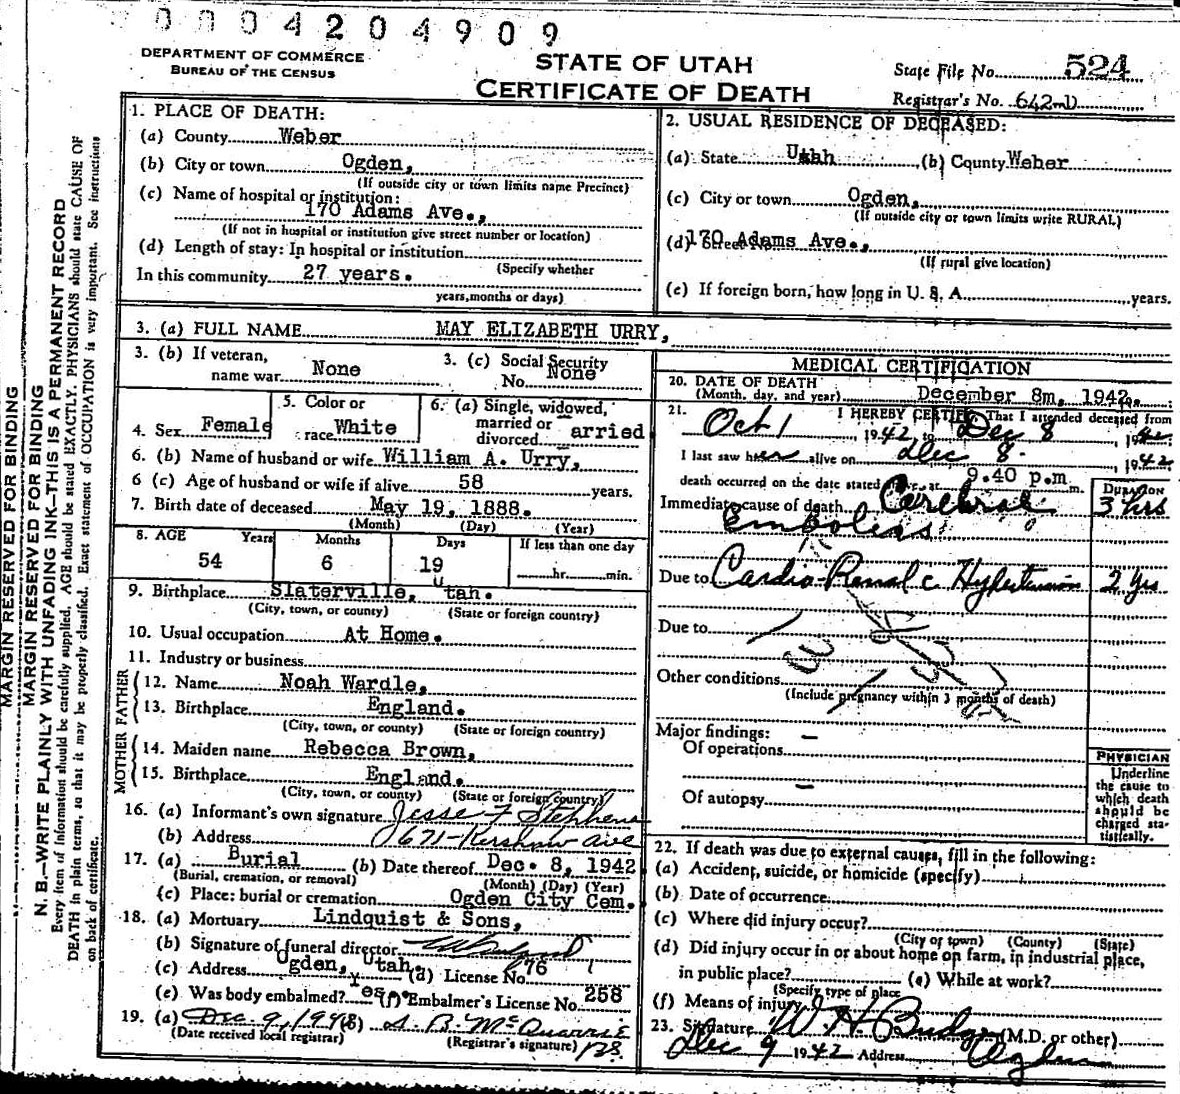 0004204909
DEPARTMENT OF COMMERCE
BUREAU OF THE CENSUS
STATE OF UTAH
CERTIFICATE OF DEATH
State File No. 524
Registrar's No. 642
MARGIN RESERVED FOR BINDING
MARGIN RESERVED FOR BINDING
N. B.—WRITE PLAINLY WITH UNFADING INK—THIS IS A PERMANENT RECORD
Every item of information should be carefully supplied. AGE should be stated EXACTLY. PHYSICIANS should state CAUSE OF
DEATH in plain terms, so that it may be properly classified. Exact statement of OCCUPATION is very important. See instructions
on back of certificate.
1. PLACE OF DEATH:
(a) County Weber
(b) City or town Ogden,
(If outside city or town limits name Precinct)
(c) Name of hospital or institution:
170 Adams Ave.,
(If not in hospital or institution give street number or location)
(d) Length of stay: In hospital or institution
(Specify whether
In this community 27 years.
years, months or days)
2. USUAL RESIDENCE OF DECEASED:
(a) State Utah (b) County Weber
(c) City or town Ogden,
(If outside city or town limits write RURAL)
(d) Street No. 170 Adams Ave.,
(If rural give location)
(e) If foreign born, how long in U. S. A. years.
3. (a) FULL NAME MAY ELIZABETH URRY,
3. (b) If veteran,
name war None
3. (c) Social Security
No. None
4. Sex Female
5. Color or
race White
6. (a) Single, widowed,
married or
divorced arried
6. (b) Name of husband or wife William A. Urry,
6 (c) Age of husband or wife if alive 58 years.
7. Birth date of deceased May 19, 1888.
(Month) (Day) (Year)
8. AGE Years Months Days If less than one day
54 6 19 hr. min.
9. Birthplace Slaterville, Utah.
(City, town, or county) (State or foreign country)
10. Usual occupation At Home.
11. Industry or business
FATHER
12. Name Noah Wardle,
13. Birthplace England.
(City, town, or county) (State or foreign country)
MOTHER
14. Maiden name Rebecca Brown,
15. Birthplace England.
(City, town, or county) (State or foreign country)
16. (a) Informant's own signature Jesse F Stephens
(b) Address 671 - Kershaw ave
17. (a) Burial (b) Date thereof Dec. 8, 1942
(Burial, cremation, or removal) (Month) (Day) (Year)
(c) Place: burial or cremation Ogden City Cem.
18. (a) Mortuary Lindquist & Sons,
(b) Signature of funeral director
(c) Address Ogden, Utah. (d) License No. 76
(e) Was body embalmed? Yes (f) Embalmer's License No. 258
19. (a) Dec. 9, 194 (b) B. McQuarrie
(Date received local registrar) (Registrar's signature)
MEDICAL CERTIFICATION
20. DATE OF DEATH
(Month, day, and year) December 8m, 1942.
21. I HEREBY CERTIFY That I attended deceased from
Oct 1, 1942 to Dec 8, 1942
I last saw her alive on Dec 8. 1942
death occurred on the date stated at 9.40 p.m m.
DURATION
Immediate cause of death Cerebral 3 hrs
Emboless
Due to Cardio-Renal c Hypertension 2 yrs
Due to
Other conditions
(Include pregnancy within 3 months of death)
Major findings: —
Of operations
—
Of autopsy
PHYSICIAN
Underline
the cause to
which death
should be
charged sta-
tistically.
22. If death was due to external causes, fill in the following:
(a) Accident, suicide, or homicide (specify)
(b) Date of occurrence
(c) Where did injury occur?
(City of town) (County) (State)
(d) Did injury occur in or about home on farm, in industrial place,
in public place? (e) While at work?
(Specify type of place
(f) Means of injury
23. Signature W. H. Budge (M.D. or other)
Dec 9 1942 Address Ogden